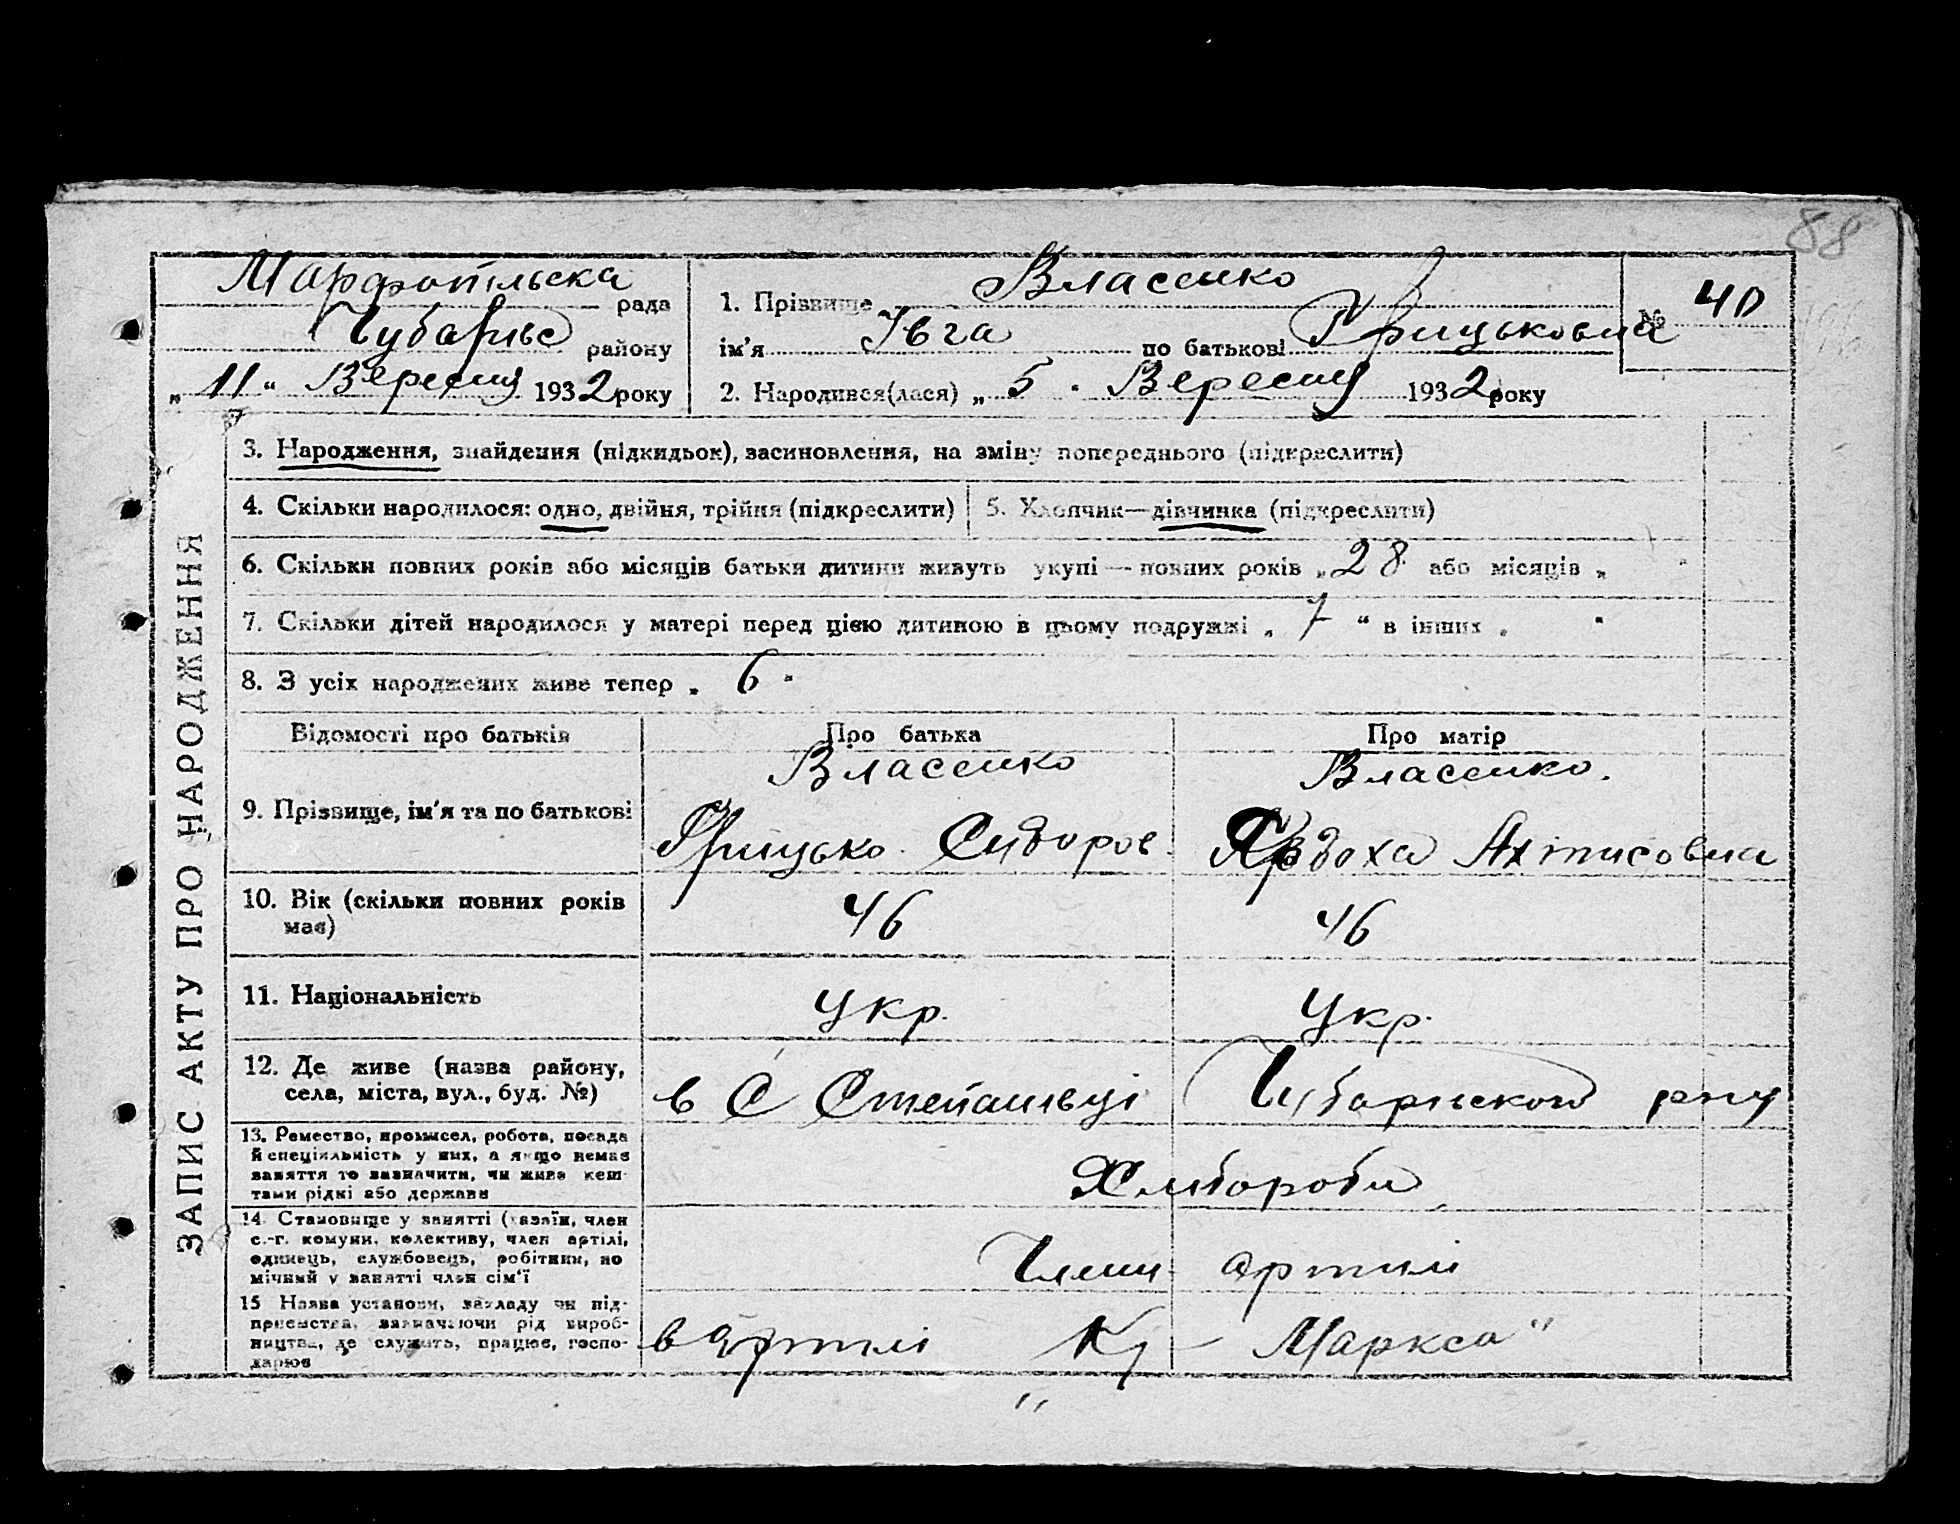 88
Марфопільска рада
Чубарівс району
„11“ Вересня 1932 року
1. Прізвище Власенко
ім'я Івга по батькові Грицьковна
2. Народився(лася) „5" Вересня 1932 року
№ 40
ЗАПИС АКТУ ПРО НАРОДЖЕННЯ
3. Народження, знайдення (підкидьок), засиновлення, на зміну попереднього (підкреслити)
4. Скільки народилося: одно, двійня, трійня (підкреслити)
5. Хлопчик—дівчинка (підкреслити)
6. Скільки повних років або місяців батьки дитини живуть укупі — повних років „28 або місяців „ "
7. Скільки дітей народилося у матері перед цією дитиною в цьому подружжі „ 7 “ в інших „ "
8. З усіх народжених живе тепер „ 6 "
Відомості про батьків
Про батька
Про матір
9. Прізвище, ім'я та по батькові
Власенко
Грицько Сидоров
Власенко.
Явдоха
10. Вік (скільки повних років
має)
46
46
11. Національність
Укр.
Укр.
12. Де живе (назва району,
села, міста, вул., буд. №)
в С Степанівці Чубарівского рну
13. Ремество, промисел, робота, посада
й спеціяльність у них, а якщо немає
заняття то зазначити, чи живе кош-
тами рідні або держави
Хлібороби
14. Становище у занятті (хазяїн, член
с.-г. комуни, колективу, член артілі,
одинець, службовець, робітник, по
мічний у занятті член сім'ї
Члени артилі
15 Назва установи, закладу чи під-
приємства, зазначаючи рід вироб-
ництва, де служить, працює, госпо-
дарює
в артилі „К Маркса"